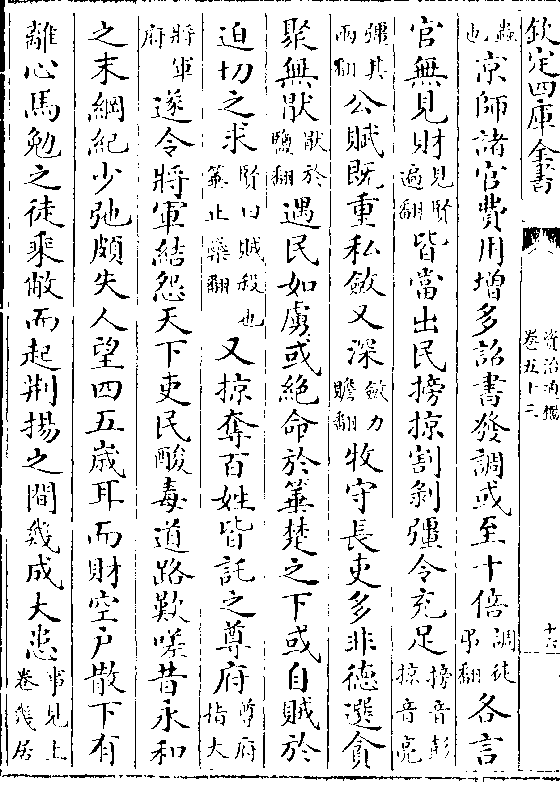 欽定四庫全書
資治通鑑
卷五十三
十六
蟲也京師諸官費用增多詔書發調或至十倍調徒弔翻各言
官無見財見賢遍翻皆當出民搒掠割剝彊令充足搒音彭掠音亮
彊其兩翻公賦既重私斂又深斂力贍翻牧守長吏多非德選貪
聚無厭厭於鹽翻遇民如虜或絕命於箠楚之下或自賊於
迫切之求賢曰賊殺也箠止橤翻又掠奪百姓皆託之尊府尊府指大
將軍府遂令將軍結怨天下吏民酸毒道路歎嗟昔永和
之末綱紀少弛頗失人望四五歲耳而財空戶散下有
離心馬勉之徒乘敝而起荆揚之間幾成大患事見上卷幾居